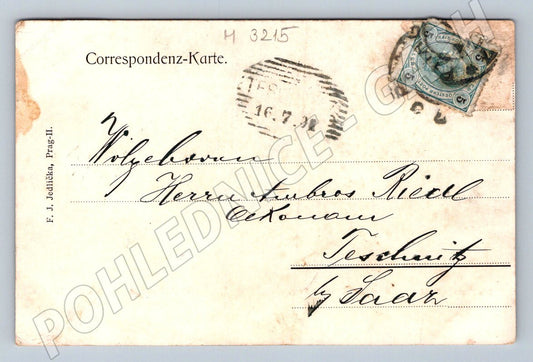 M 3215
Correspondenz-Karte.
16.7.
5
5
F. J. Jedlička, Prag-II.
Wolgeboren
Herrn Ambros Riedl
Oekonom
Teschnitz
by Saaz
POHLEDNICE -